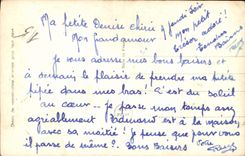 Ma petite Denise chérie
Mon Grand amour
jeudi soir
Mon petit
trésor adoré!
Tendres
Baisers
Je vous adresse mes bons baisers et
à demain le plaisir de prendre ma petite
pipée dans mes bras! C'est du soleil
au cœur — je passe mon temps assez
agréablement est à la maison
avec sa moitié! Je pense que pour vous
il passe de même?. Bons Baisers